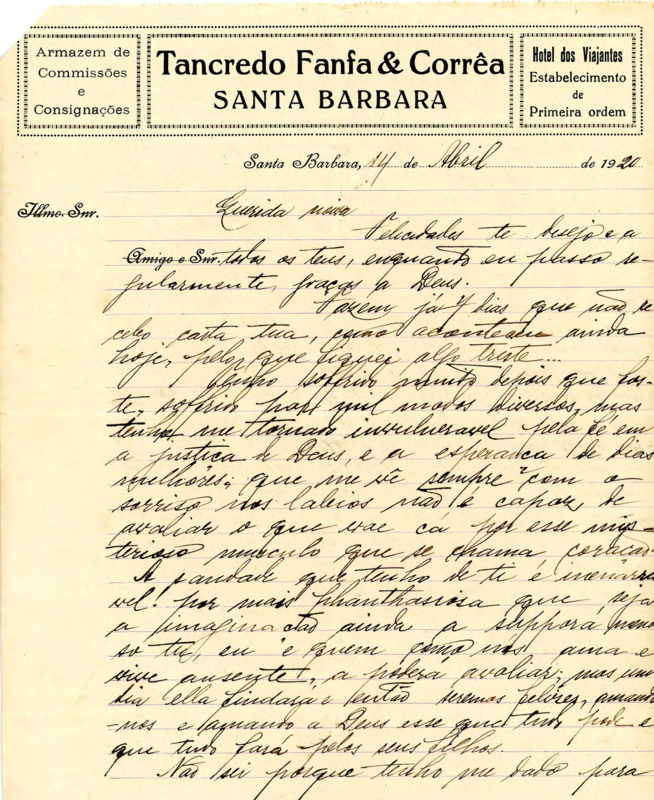 Armazem de
Commissões
e
Consignações
Tancredo Fanfa & Corrêa
SANTA BARBARA
Hotel dos Viajantes
Estabelecimento
de
Primeira ordem
Santa Barbara, 14 de Abril de 1920
Illmo. Snr.
Querida noiva
Felicidades te desejo e a
Amigo e Snr.
todos os teus, enquando eu passo re-
gularmente, graças a Deus.
Fazem já 7 dias que não re
cebo carta tua, como aconteceu ainda
hoje, pelo que fiquei algo triste...
Tenho soffrido muito depois que fos-
te, soffrido por mil modos diversos, mas
tenho me tornado invulneravel pela fé em
a justiça de Deus, e a esperança de dias
melhóres; que, me vê sempre com o
sorriso nos labios não é capaz de
avaliar o que vae cá por esse mys-
terioso musculo que se chama coração.
A saudade que tenho de ti é inenarra
vel! por mais phanthasiosa que seja
a imaginação ainda a supporá menos
so tu, eu e quem como nós ama e
vive ausente, a póderá avaliar; mas um
dia ella findará e então seremos felizes, amando
-nos e amando a Deus esse que tudo póde e
que tudo fará pelos seus filhos.
Não sei porque tenho me dado para